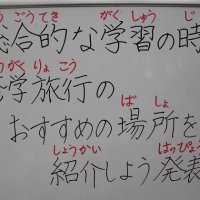 ごう てき がく しゅう じ
総合的な学習の時
がく りょ こう
学旅行の
ば しょ
おすすめの場所を
しょうかい はっぴょう
紹介しよう 発表